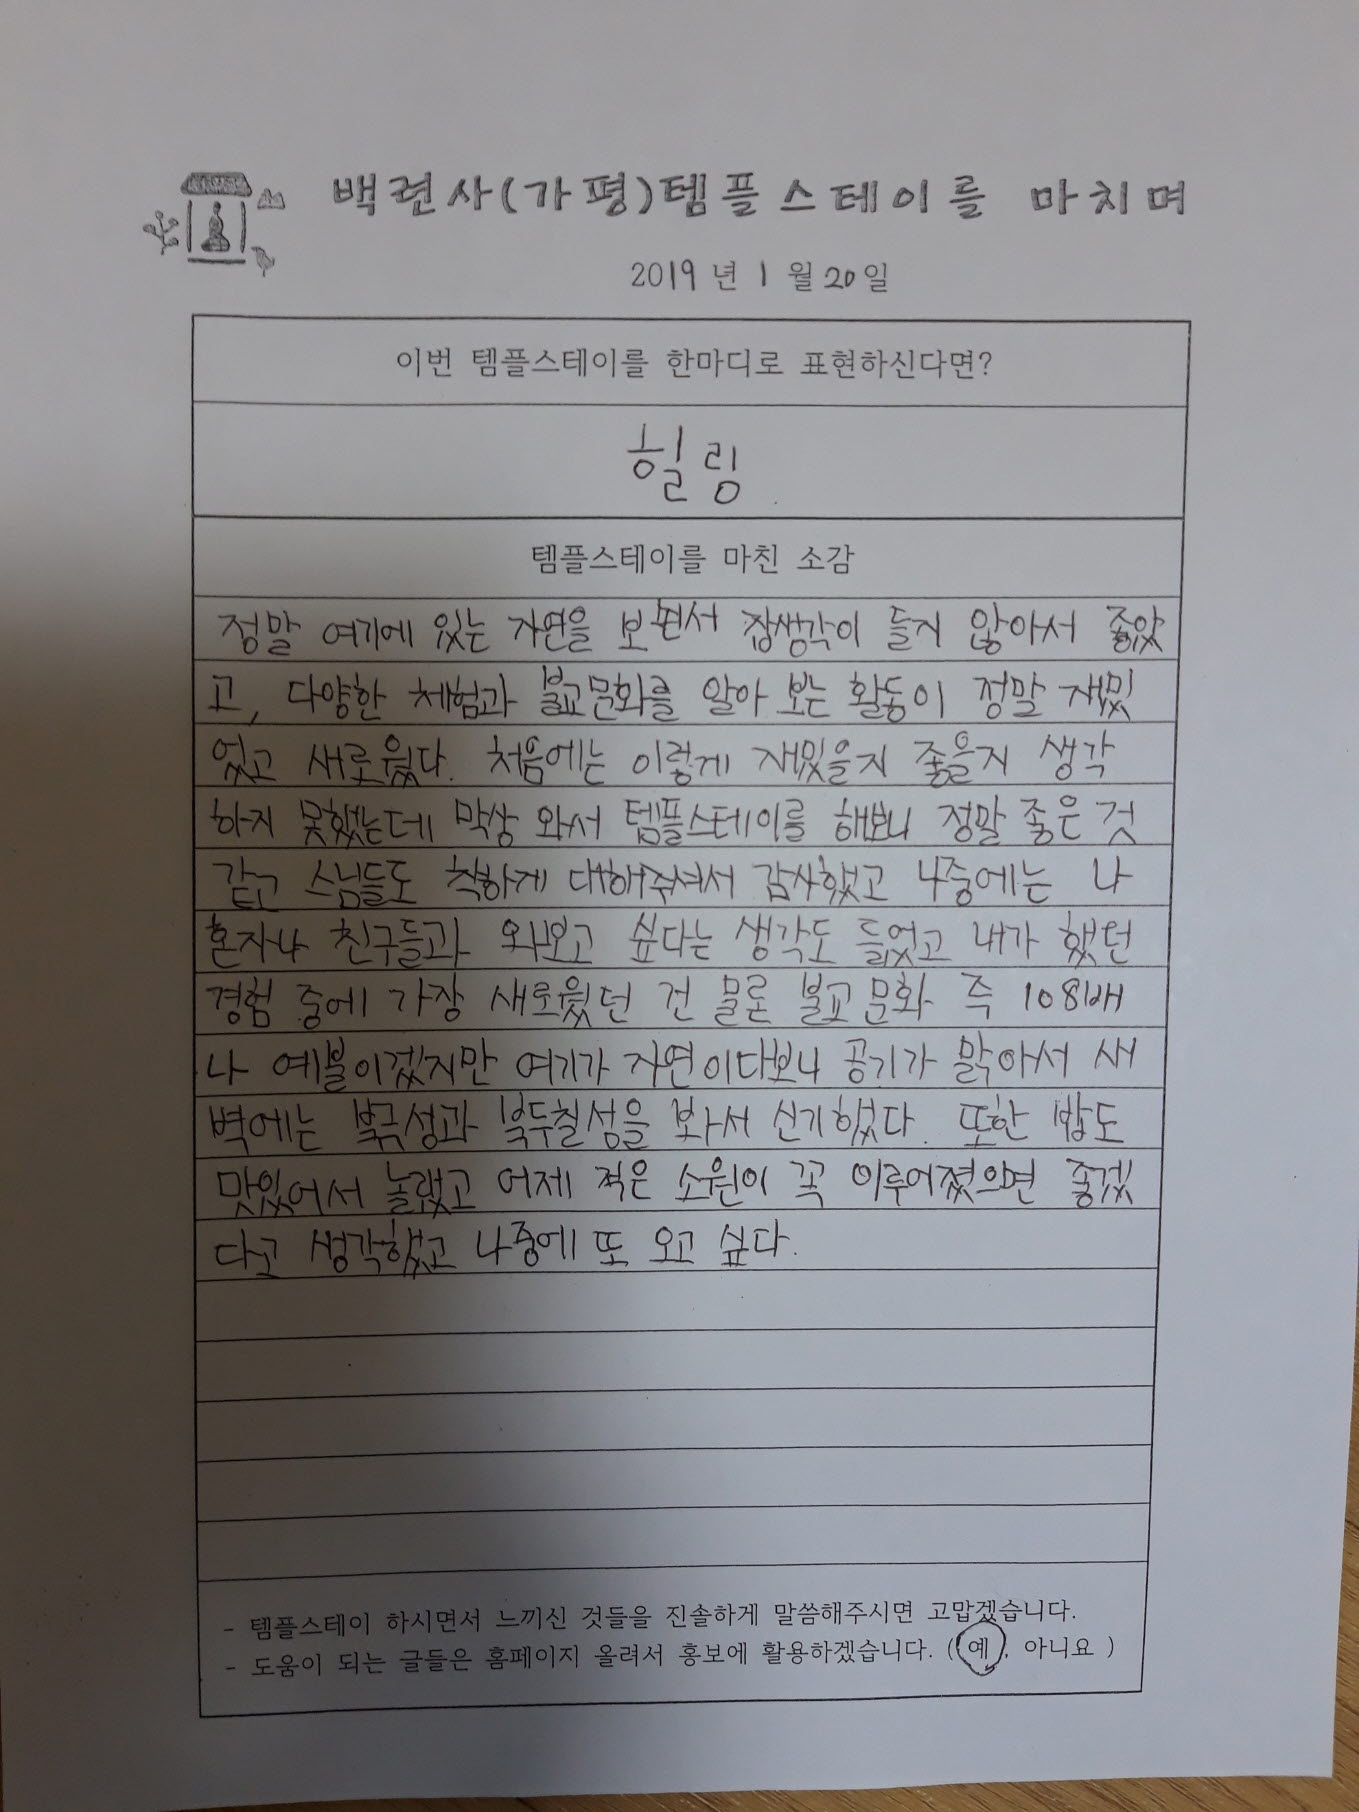 백련사(가평)템플스테이를 마치며
2019년 1월 20일
이번 템플스테이를 한마디로 표현하신다면?
힐링
템플스테이를 마친 소감
정말 여기에 있는 자연을 보면서 잡생각이 들지 않아서 좋았
고, 다양한 체험과 불교문화를 알아 보는 활동이 정말 재밌
었고 새로웠다. 처음에는 이렇게 재밌을지 좋을지 생각
하지 못했는데 막상 와서 템플스테이를 해보니 정말 좋은 것
같고 스님들도 착하게 대해주셔서 감사했고 나중에는 나
혼자나 친구들과 와보고 싶다는 생각도 들었고 내가 했던
경험 중에 가장 새로웠던 건 물론 불교문화 즉 108배
나 예불이겠지만 여기가 자연이다보니 공기가 맑아서 새
벽에는 북극성과 북두칠성을 봐서 신기했다. 또한 밥도
맛있어서 놀랬고 어제 적은 소원이 꼭 이루어졌으면 좋겠
다고 생각했고 나중에 또 오고 싶다.
- 템플스테이 하시면서 느끼신 것들을 진솔하게 말씀해주시면 고맙겠습니다.
- 도움이 되는 글들은 홈페이지 올려서 홍보에 활용하겠습니다. ( 예, 아니요 )